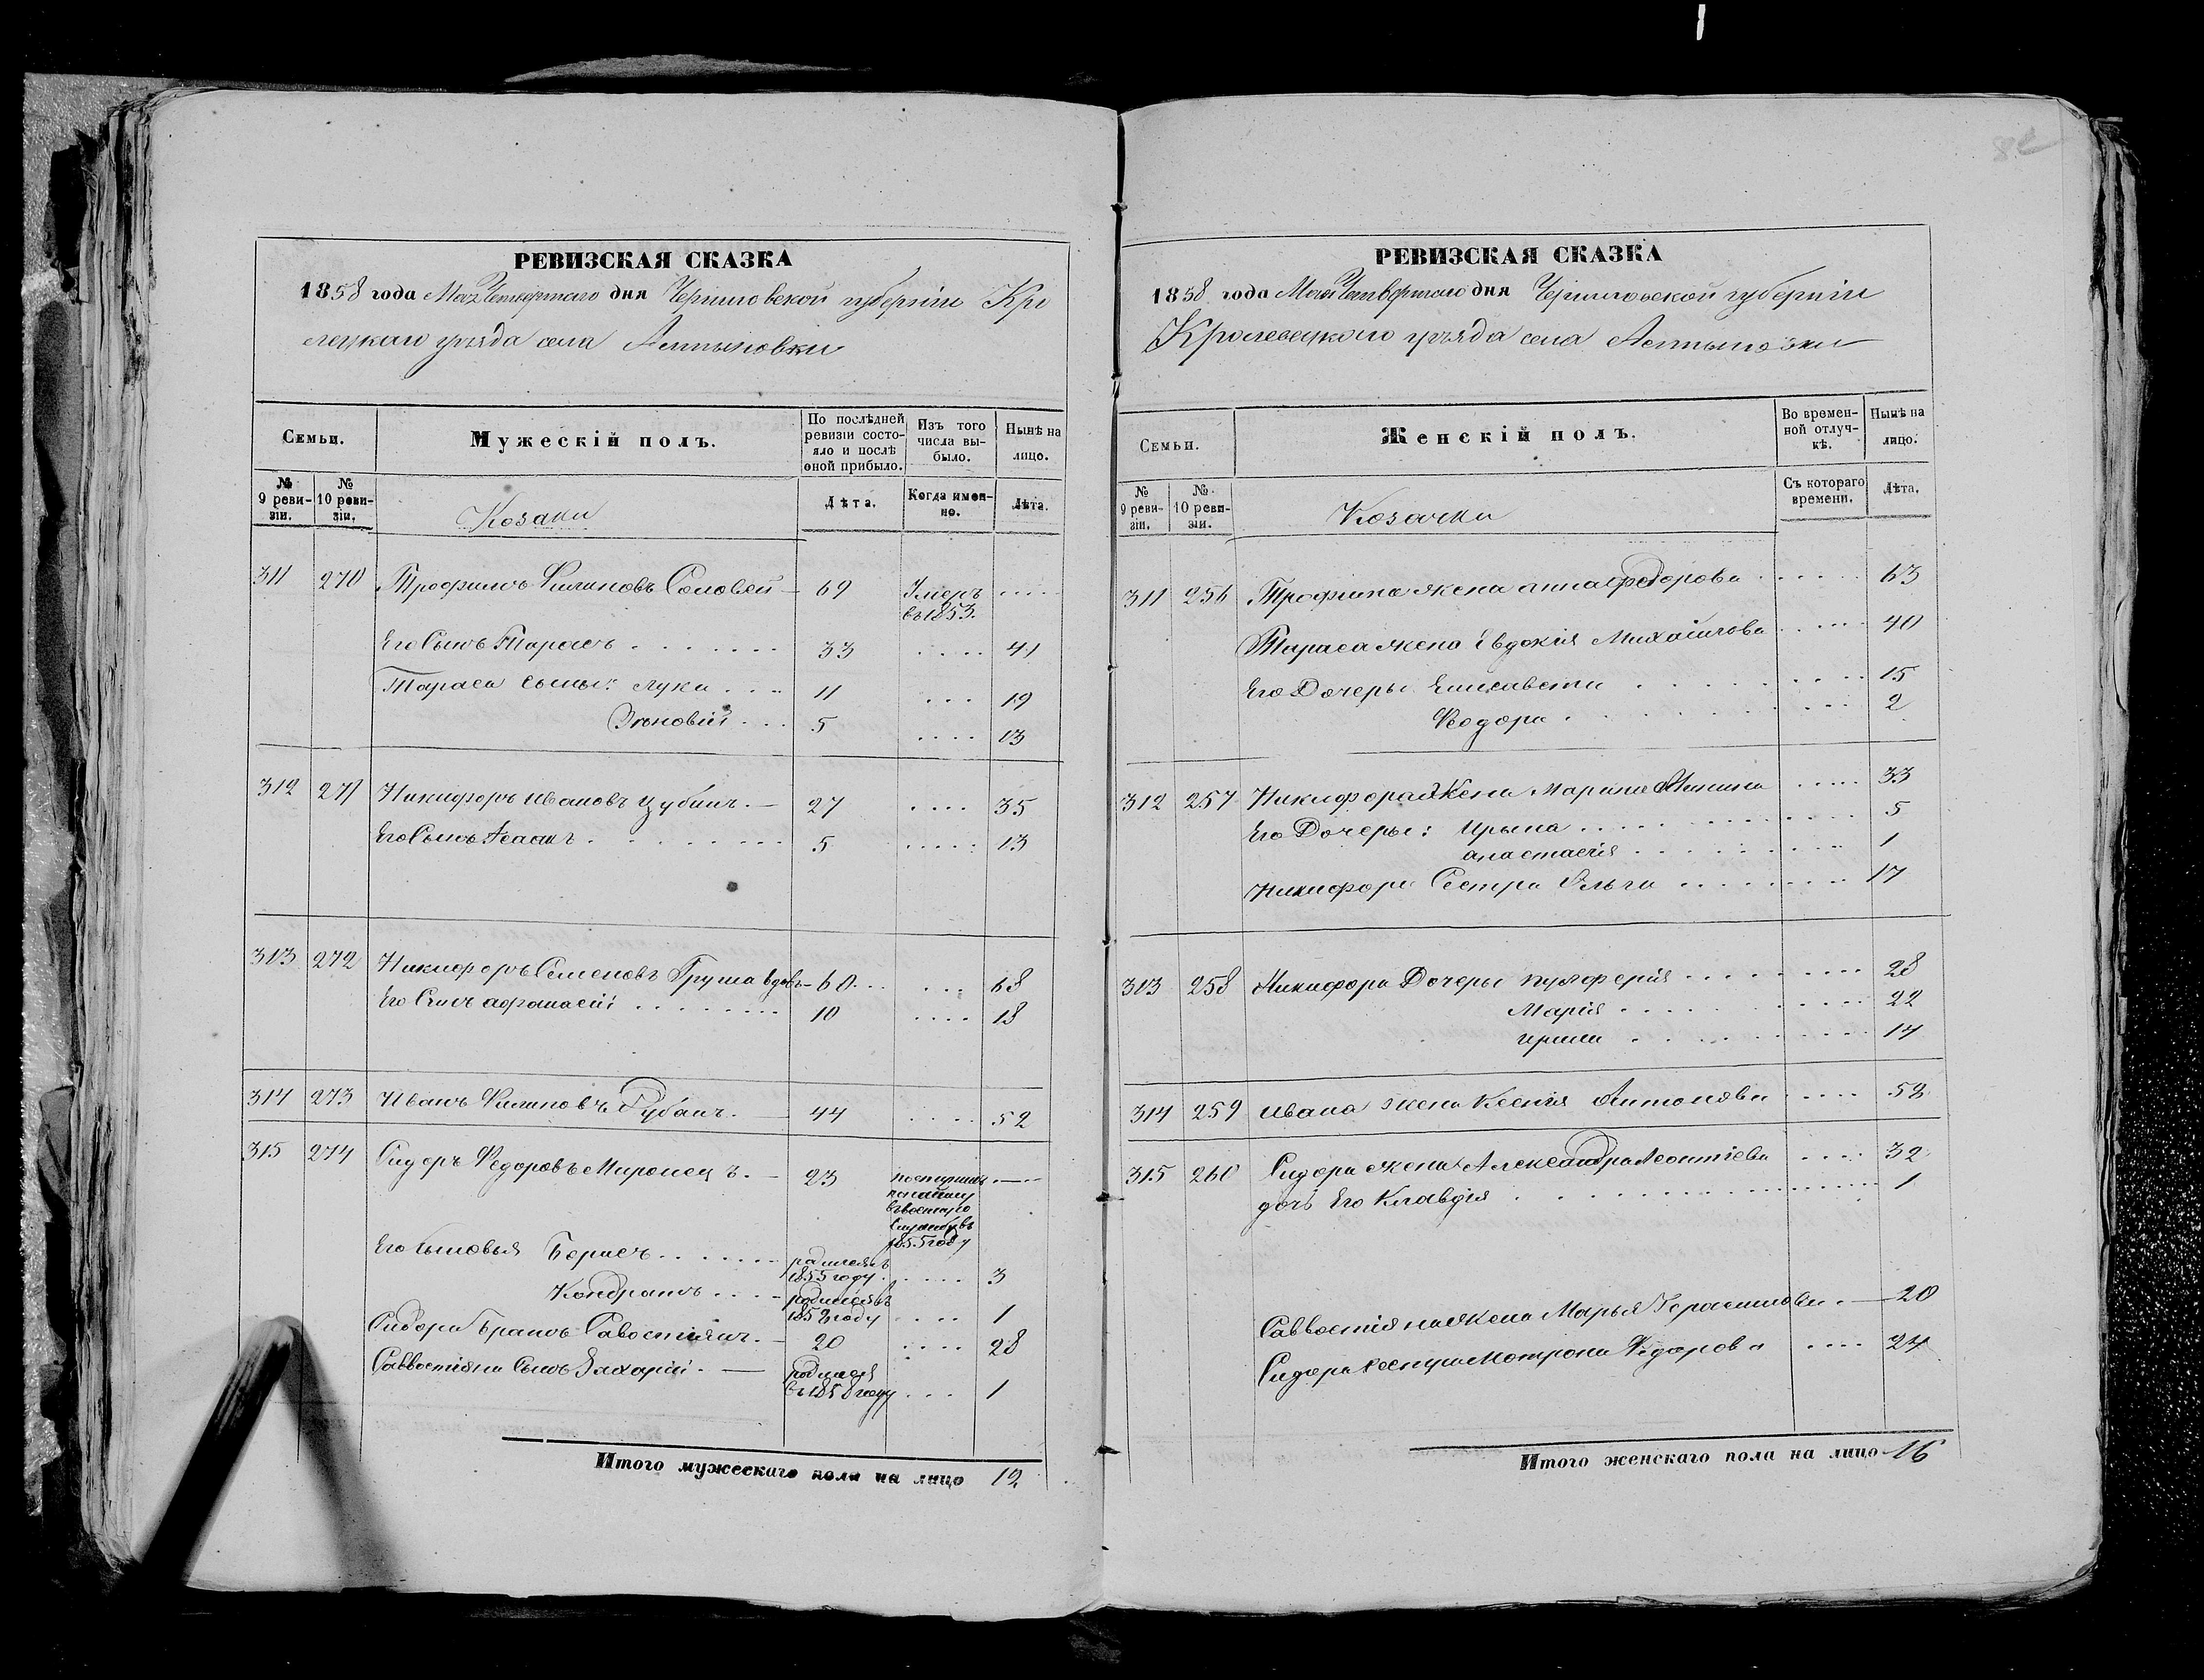 РЕВИЗСКАЯ СКАЗКА
1858 года Мая Четвертаго дня Черниговской губерніи Кро
лецкаго уѣзда села Алтыновки
Семьи.
Мужескій полъ.
По послѣдней ревизіи состояло и послѣ оной прибыло.
Изъ того числа выбыло.
Нынѣ на лицо.
№ 9 ревизіи.
№ 10 ревизіи.
Козаки
Лѣта.
Когда именно.
Лѣта.
311 270 Трофимъ Филиповъ Соловей 69 Умеръ въ 1853.
Его Сынъ Тарасъ 33 41
Тараса сыны: Лука 11 19
Зѣновій 5 13
312 271 Никифоръ Ивановъ Цубинъ 27 35
Его Сынъ Исаакъ 5 13
313 272 Никифоръ Семеновъ Груша вдовъ 60 68
Его Сынъ афонасій 10 18
314 273 Иванъ Филиповъ Рубанъ 44 52
315 274 Сидоръ Федоровъ Миронецъ 23 поступилъ
по найму
въ военную
службу въ
1855 году
Его сыновья Борисъ родился въ
1855 году 3
Кондратъ родился въ
1858 году 1
Сидора Братъ Савостіянъ 20 28
Саввостіяна Сынъ Захарій родился
въ 1858 году 1
Итого мужескаго пола на лицо 12
РЕВИЗСКАЯ СКАЗКА
1858 года Мая Четвертаго дня Черниговской губерніи
Кролевецкого уѣзда села Алтыновки
Семьи.
Женскій полъ.
Во временной отлучкѣ.
Нынѣ на лицо.
№ 9 ревизіи.
№ 10 ревизіи.
Козачки
Съ котораго времени.
Лѣта.
311 256 Трофима жена анна федорова 63
Тараса жена Евдокія Михайлова 40
Его Дочеры Елисавета 15
Феодора 2
312 257 Никифора Жена Марина 33
Его Дочеры: Ирына 5
анастасія 1
Никифора Сестра Ольга 17
313 258 Никифора Дочеры пулхферія 28
Марія 22
ирина 14
314 259 ивана жена Ксенія Антонова 58
315 260 Сидора жена Александра Леонтіева 32
дочь Его Клавдія 1
Саввостіяна Жена Марья Герасимова 20
Сидора Сестра Мотрона Федорова 24
Итого женскаго пола на лицо 16